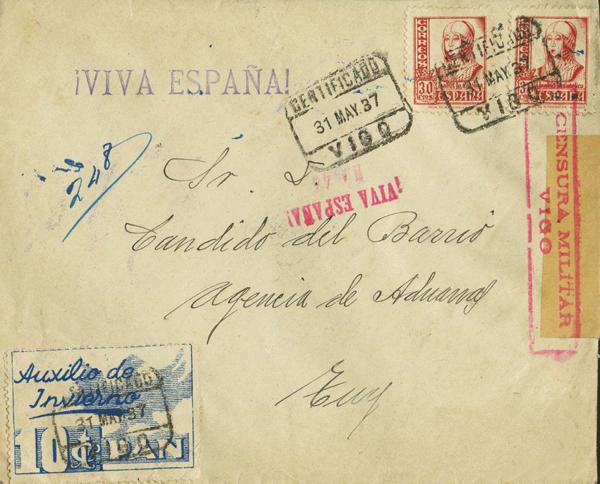 ¡VIVA ESPAÑA!
CERTIFICADO
31 MAY.37
VIGO
CORREOS
30 CTS
ESPAÑA
CERTIFICADO
31 MAY.37
VIGO
CENSURA MILITAR
VIGO
248
Sr. D
¡VIVA ESPAÑA!
Candido del Barrio
Agencia de Aduanas
Tuy
Auxilio de
Invierno
CERTIFICADO
31 MAY.37
VIGO
10 PAN